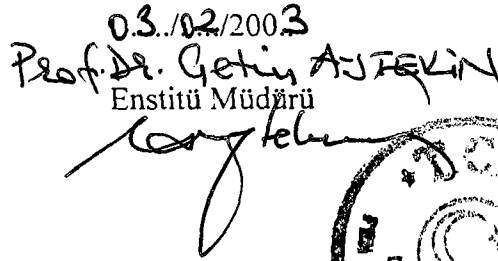 03../02./2003
Prof. Dr. Çetin AYTEKİN
Enstitü Müdürü